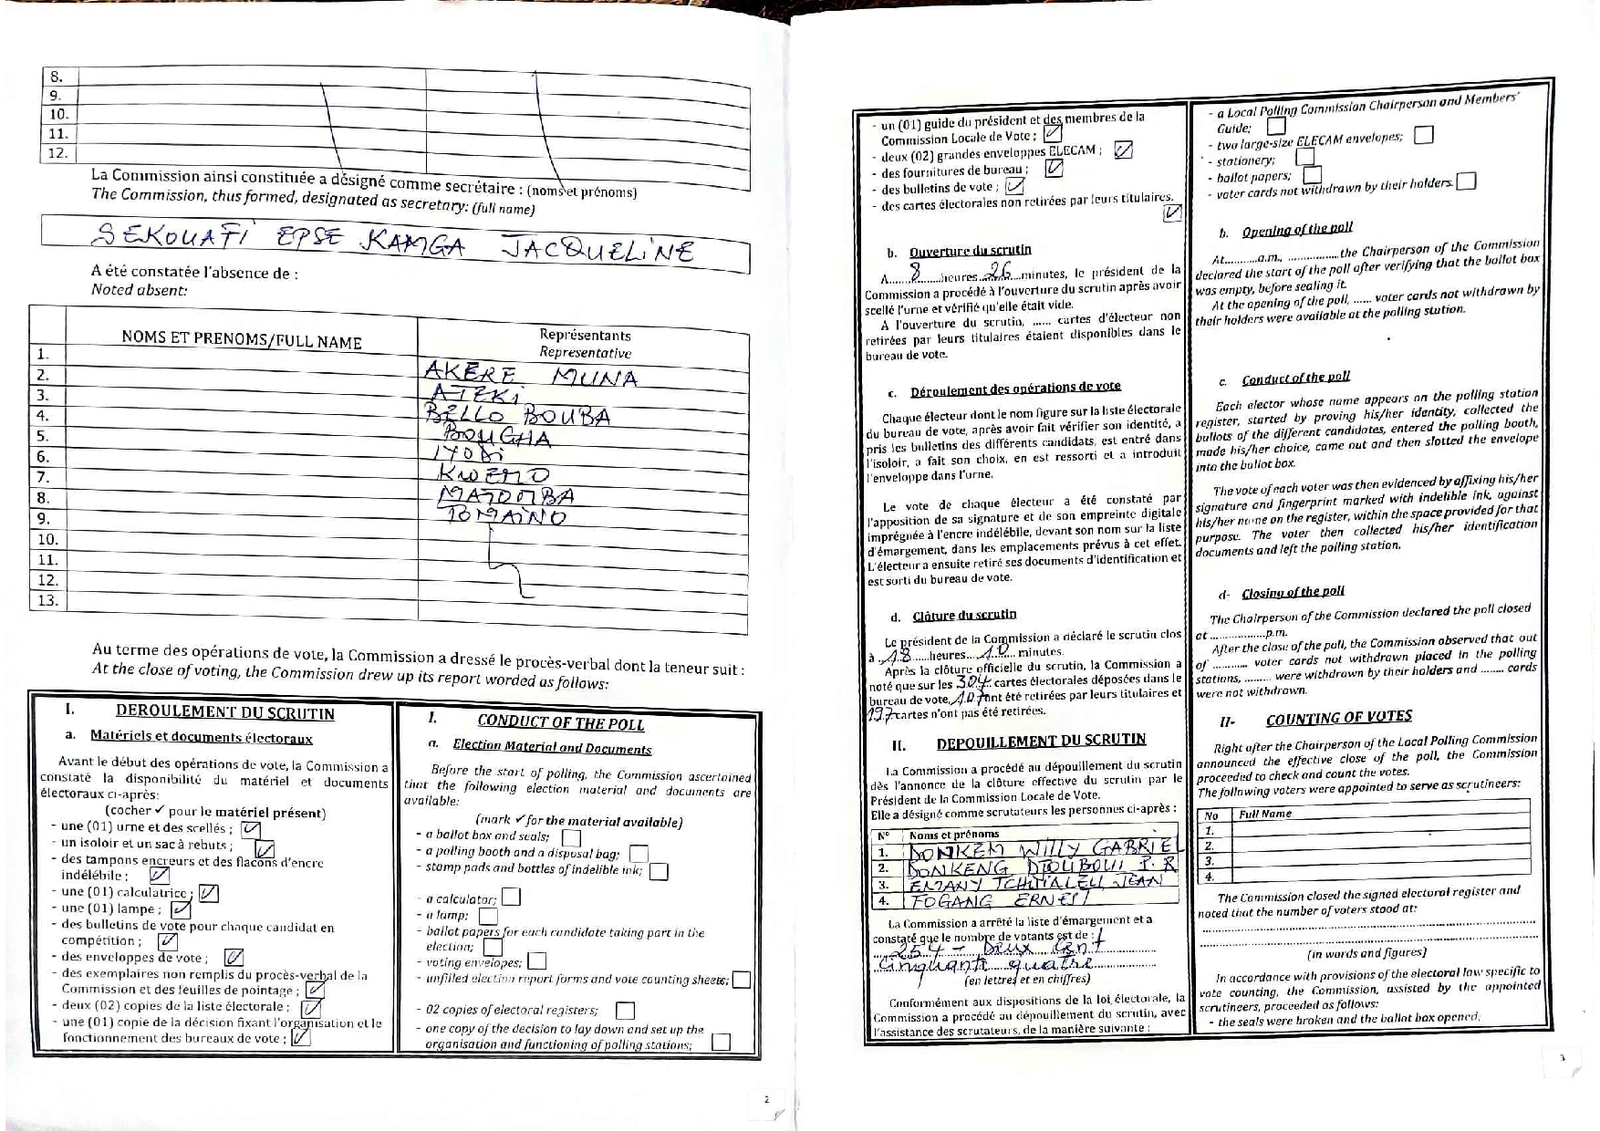 8.
9.
10.
11.
12.
La Commission ainsi constituée a désigné comme secrétaire : (noms et prénoms)
The Commission, thus formed, designated as secretary: (full name)
SEKOUAFI EPSE KAMGA JACQUELINE
A été constatée l'absence de :
Noted absent:
NOMS ET PRENOMS/FULL NAME
Représentants
Representative
1.
2. AKERE MUNA
3. ATEKI
4. BELLO BOUBA
5. BOUGHA
6.
7. KWEMO
8. MATOMBA
9. TOMAINO
10.
11.
12.
13.
Au terme des opérations de vote, la Commission a dressé le procès-verbal dont la teneur suit :
At the close of voting, the Commission drew up its report worded as follows:
I. DEROULEMENT DU SCRUTIN
a. Matériels et documents électoraux
Avant le début des opérations de vote, la Commission a
constaté la disponibilité du matériel et documents
électoraux ci-après:
(cocher ✓ pour le matériel présent)
- une (01) urne et des scellés ;
- un isoloir et un sac à rebuts ;
- des tampons encreurs et des flacons d'encre
indélébile ;
- une (01) calculatrice ;
- une (01) lampe ;
- des bulletins de vote pour chaque candidat en
compétition ;
- des enveloppes de vote ;
- des exemplaires non remplis du procès-verbal de la
Commission et des feuilles de pointage ;
- deux (02) copies de la liste électorale ;
- une (01) copie de la décision fixant l'organisation et le
fonctionnement des bureaux de vote ;
I. CONDUCT OF THE POLL
a. Election Material and Documents
Before the start of polling, the Commission ascertained
that the following election material and documents are
available:
(mark ✓ for the material available)
- a ballot box and seals;
- a polling booth and a disposal bag;
- stamp pads and bottles of indelible ink;
- a calculator;
- a lamp;
- ballot papers for each candidate taking part in the
election;
- voting envelopes;
- unfilled election report forms and vote counting sheets;
- 02 copies of electoral registers;
- one copy of the decision to lay down and set up the
organisation and functioning of polling stations;
2
- un (01) guide du président et des membres de la
Commission Locale de Vote ;
- deux (02) grandes enveloppes ELECAM ;
- des fournitures de bureau ;
- des bulletins de vote ;
- des cartes électorales non retirées par leurs titulaires.
b. Ouverture du scrutin
A 8 heures 26 minutes, le président de la
Commission a procédé à l'ouverture du scrutin après avoir
scellé l'urne et vérifié qu'elle était vide.
A l'ouverture du scrutin, ...... cartes d'électeur non
retirées par leurs titulaires étaient disponibles dans le
bureau de vote.
c. Déroulement des opérations de vote
Chaque électeur dont le nom figure sur la liste électorale
du bureau de vote, après avoir fait vérifier son identité, a
pris les bulletins des différents candidats, est entré dans
l'isoloir, a fait son choix, en est ressorti et a introduit
l'enveloppe dans l'urne.
Le vote de chaque électeur a été constaté par
l'apposition de sa signature et de son empreinte digitale
imprégnée à l'encre indélébile, devant son nom sur la liste
d'émargement, dans les emplacements prévus à cet effet.
L'électeur a ensuite retiré ses documents d'identification et
est sorti du bureau de vote.
d. Clôture du scrutin
Le président de la Commission a déclaré le scrutin clos
à 18 heures 10 minutes.
Après la clôture officielle du scrutin, la Commission a
noté que sur les 304 cartes électorales déposées dans le
bureau de vote, 107 ont été retirées par leurs titulaires et
197 cartes n'ont pas été retirées.
II. DEPOUILLEMENT DU SCRUTIN
La Commission a procédé au dépouillement du scrutin
dès l'annonce de la clôture effective du scrutin par le
Président de la Commission Locale de Vote.
Elle a désigné comme scrutateurs les personnes ci-après :
N° Noms et prénoms
1. DONKEM WILLY GABRIEL
2. DONKENG
3. JEAN
4. FOGANG ERNEST
La Commission a arrêté la liste d'émargement et a
constaté que le nombre de votants est de :
254 - Deux cent
Cinquante quatre
(en lettres et en chiffres)
Conformément aux dispositions de la loi électorale, la
Commission a procédé au dépouillement du scrutin, avec
l'assistance des scrutateurs, de la manière suivante :
- a Local Polling Commission Chairperson and Members'
Guide;
- two large-size ELECAM envelopes;
- stationery;
- ballot papers;
- voter cards not withdrawn by their holders.
b. Opening of the poll
At...........a.m., ................the Chairperson of the Commission
declared the start of the poll after verifying that the ballot box
was empty, before sealing it.
At the opening of the poll, ...... voter cards not withdrawn by
their holders were available at the polling station.
c. Conduct of the poll
Each elector whose name appears on the polling station
register, started by proving his/her identity, collected the
ballots of the different candidates, entered the polling booth,
made his/her choice, came out and then slotted the envelope
into the ballot box.
The vote of each voter was then evidenced by affixing his/her
signature and fingerprint marked with indelible ink, against
his/her name on the register, within the space provided for that
purpose. The voter then collected his/her identification
documents and left the polling station.
d- Closing of the poll
The Chairperson of the Commission declared the poll closed
at .................p.m.
After the close of the poll, the Commission observed that out
of ........... voter cards not withdrawn placed in the polling
stations, ......... were withdrawn by their holders and ........ cards
were not withdrawn.
II- COUNTING OF VOTES
Right after the Chairperson of the Local Polling Commission
announced the effective close of the poll, the Commission
proceeded to check and count the votes.
The following voters were appointed to serve as scrutineers:
No Full Name
1.
2.
3.
4.
The Commission closed the signed electoral register and
noted that the number of voters stood at:
(in words and figures)
In accordance with provisions of the electoral law specific to
vote counting, the Commission, assisted by the appointed
scrutineers, proceeded as follows:
- the seals were broken and the ballot box opened;
3